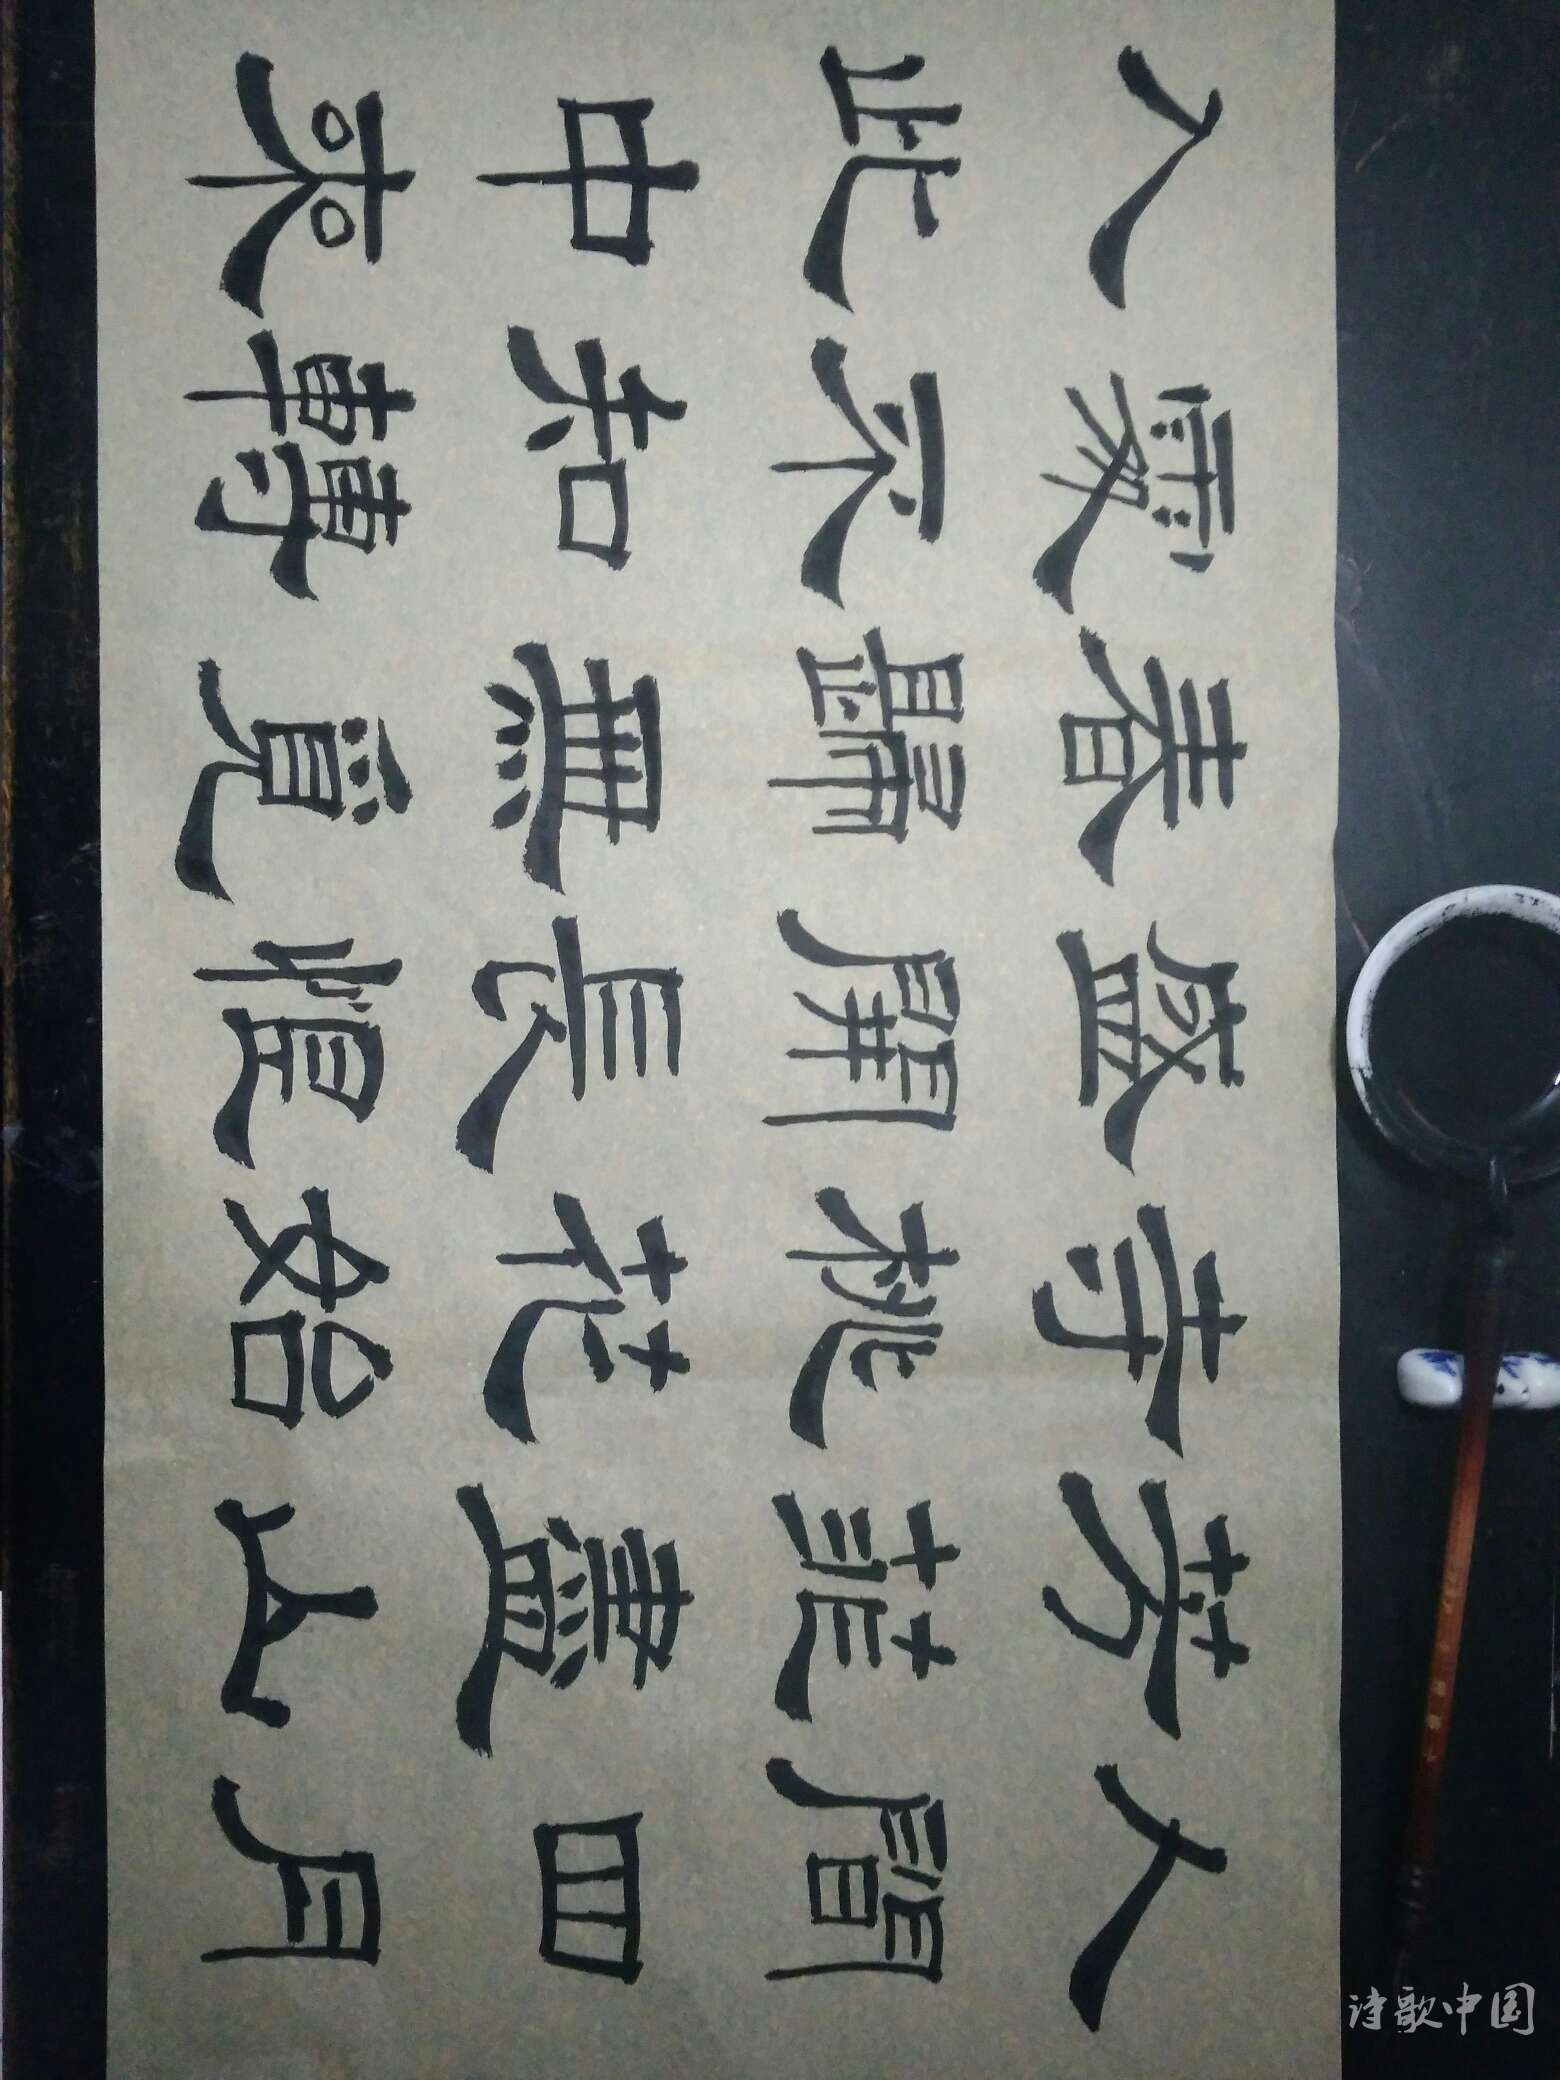 人間四月
芳菲盡山
寺桃花始
盛開長恨
春歸無覓
處不知轉
入此中來
诗歌中国